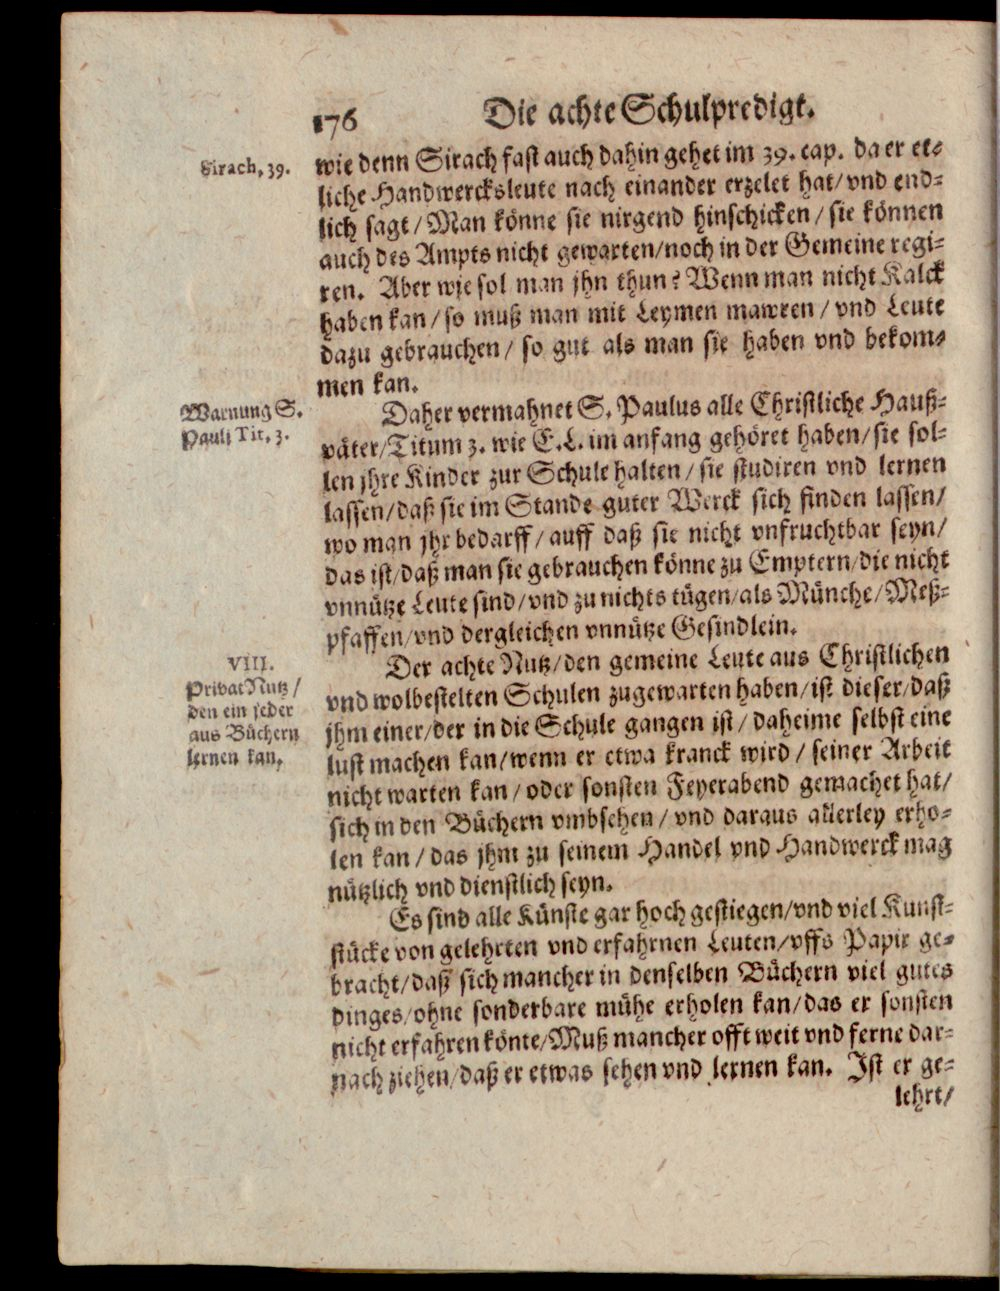 176 Die achte Schulpredigt.
Sirach, 39.
wie denn Sirach fast auch dahin gehet im 39. cap. da er et-
liche Handwercksleute nach einander erzelet hat/ vnd end-
lich sagt/ Man könne sie nirgend hinschicken/ sie können
auch des Ampts nicht gewarten/ noch in der Gemeine regi-
ren. Aber wie sol man jhn thun? Wenn man nicht Kalck
haben kan/ so muß man mit Leymen mawren/ vnd Leute
dazu gebrauchen/ so gut als man sie haben vnd bekom-
men kan.
Warnung S.
Pauli Tit. 3.
Daher vermahnet S. Paulus alle Christliche Hauß-
väter/ Titum 3. wie E. L. im anfang gehöret haben/ sie sol-
len jhre Kinder zur Schule halten/ sie studiren vnd lernen
lassen/ daß sie im Stande guter Werck sich finden lassen/
wo man jhr bedarff/ auff daß sie nicht vnfruchtbar seyn/
das ist/ daß man sie gebrauchen könne zu Emptern/ die nicht
vnnütze Leute sind/ vnd zu nichts tügen/ als Münche/ Meß-
pfaffen/ vnd dergleichen vnnütze Gesindlein.
VIII.
Privat Nutz/
den ein jeder
aus Büchern
lernen kan.
Der achte Nutz/ den gemeine Leute aus Christlichen
vnd wolbestelten Schulen zugewarten haben/ ist dieser/ daß
jhm einer/ der in die Schule gangen ist/ daheime selbst eine
lust machen kan/ wenn er etwa kranck wird/ seiner Arbeit
nicht warten kan/ oder sonsten Feyerabend gemachet hat/
sich in den Büchern vmbsehen/ vnd daraus allerley erho-
len kan/ das jhm zu seinem Handel vnd Handwerck mag
nützlich vnd dienstlich seyn.
Es sind alle Künste gar hoch gestiegen/ vnd viel Kunst-
stücke von gelehrten vnd erfahrnen Leuten/ vffs Papir ge-
bracht/ daß sich mancher in denselben Büchern viel gutes
dinges/ ohne sonderbare mühe erholen kan/ das er sonsten
nicht erfahren könte/ Muß mancher offt weit vnd ferne dar-
nach ziehen/ daß er etwas sehen vnd lernen kan. Ist er ge-
lehrt/